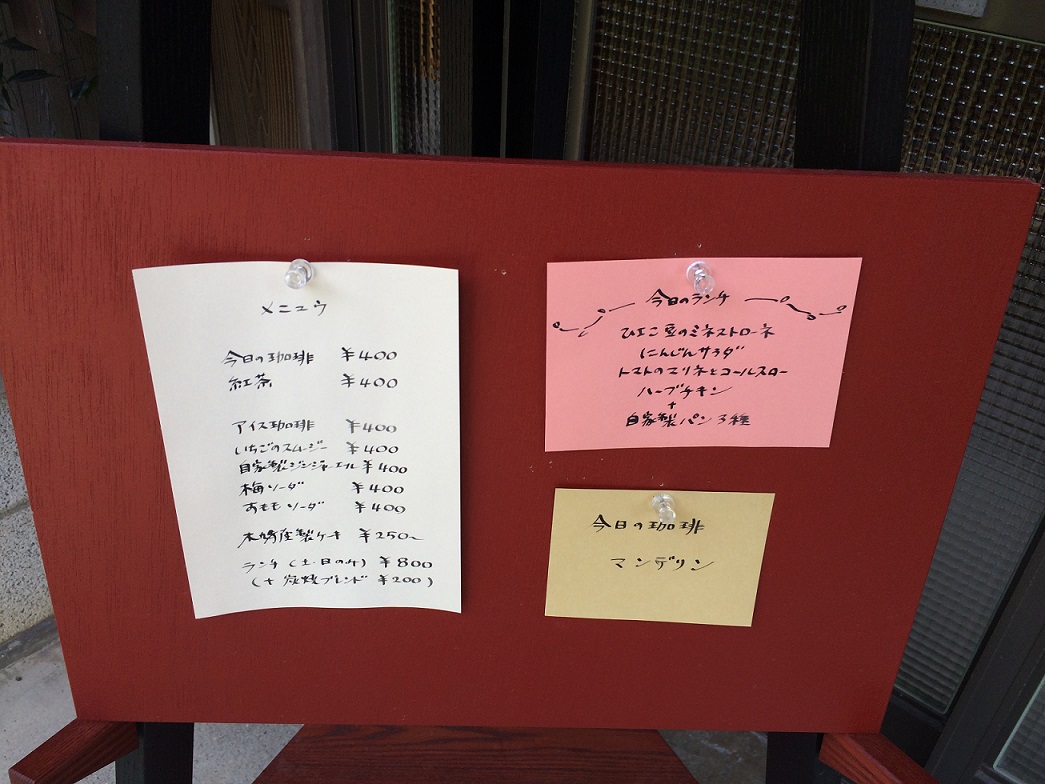 メニュウ
今日の珈琲 ¥400
紅茶 ¥400
アイス珈琲 ¥400
いちごのスムージー ¥400
自家製ジンジャーエール ¥400
梅ソーダ ¥400
すももソーダ ¥400
製ケーキ ¥250〜
ランチ(土・日のみ) ¥800
(+炭焼ブレンド ¥200)
今日のランチ
ひよこ豆のミネストローネ
にんじんサラダ
トマトのマリネとコールスロー
ハーブチキン
+
自家製パン3種
今日の珈琲
マンデリン